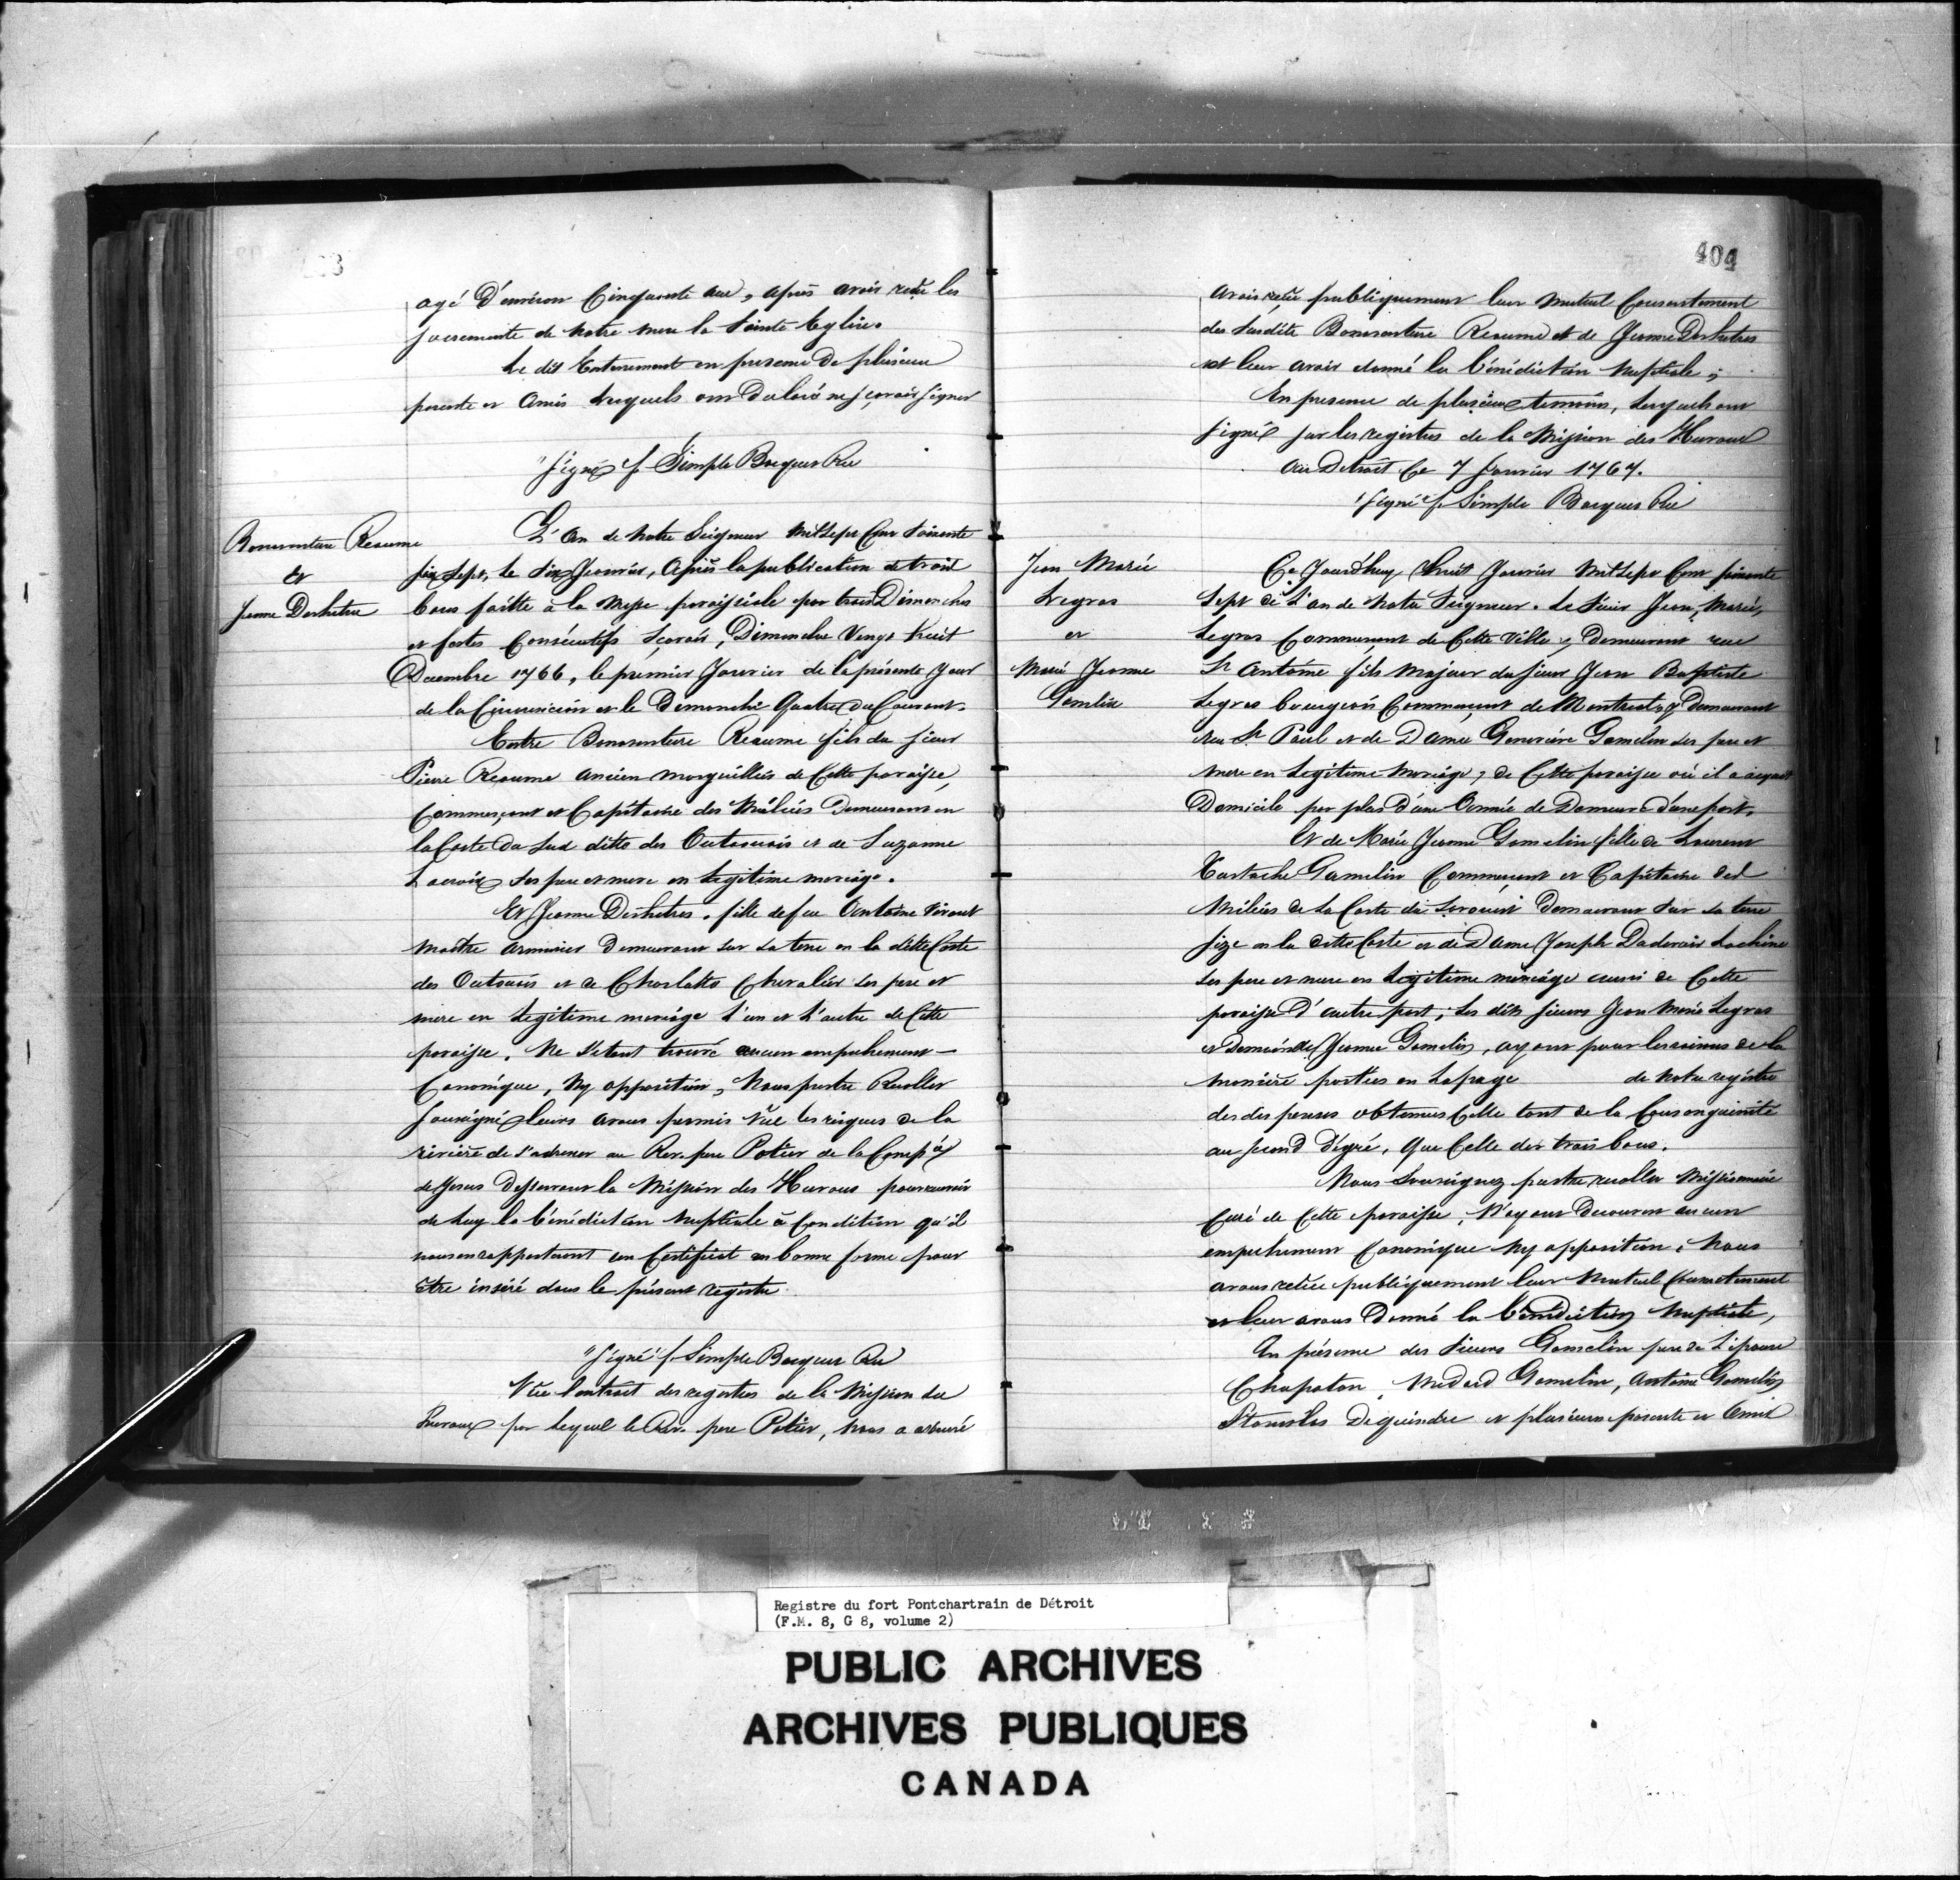 403
agé d'environ Cinquante ans, après avoir reçu les
sacrements de notre mere la Sainte Eglise.
Le dit Enterrement en presence de plusieurs
parents et Amis lesquels ont déclaré ne sçavoir signer
"signé" f. Simple Bocquet Rec
Bonaventure Reaume
et
Jeanne Deshetres
L'An de notre Seigneur mil Sept Cent Soixante
Sept, le Six Janvier, Après la publication de trois
bans faitte à la Messe paroissiale par trois Dimanches
et festes Consécutifs sçavoir, Dimanche Vingt huit
Décembre 1766, le premier Janvier de la présente Jour
de la Circoncision et le Dimanche Quatre du Courant.
Entre Bonaventure Reaume fils du sieur
Pierre Reaume ancien marguillier de Cette paroisse,
Commerçant et Capitaine des Milices Demeurant en
la Coste du Sud ditte des Outaouais et de Suzanne
Lacroix ses pere et mere en Legitime mariage.
Et Jeanne Deshetres, fille de feu Antoine vivant
maître armurier Demeurant sur sa terre en la ditte Coste
des Outaouais et de Charlotte Chevalier ses pere et
mere en Legitime mariage L'un et L'autre de Cette
paroisse. Ne s'étant trouvé aucun empechement
Canonique, Ny opposition, Nous prestre Recollet
soussigné leurs avons permis vüe les risques de la
rivière de s'adresser au Rev. pere Potier de la Comp.
de Jesus Desservant la Mission des Hurons pour recevoir
de Luy la bénédiction Nuptiale à Condition qu'il
nous en rapporteront un Certificat en bonne forme pour
être inséré dans le présent registre
"Signé" f. Simple Bocquet Rec
Vüe l'extrait des registres de la Mission des
hurons par lequel le Rev. pere Potier, Nous a assuré
404
avoir reçüe publiquement leur mutuel Consentement
des susdits Bonaventure Reaume et de Jeanne Deshetres
et leur avoir donné la bénédiction Nuptiale ;
En presence de plusieurs temoins, Lesquels ont
signé sur les registres de la Mission des Hurons
au Detroit Ce 7 Janvier 1767.
"signé" f. Simple Bocquet Rec
Jean Marie
Legras
et
Marie Jeanne
Gamelin
Ce Jourd'huy huit Janvier Mil Sept Cent soixante
Sept de L'an de Notre Seigneur. Le Sieur Jean, Marie,
Legras Commerçant de Cette Ville y, Demeurant rue
St Antoine fils Majeur du sieur Jean Baptiste
Legras bourgeois Commerçant de Montreal, y Demeurant
rue St Paul et de Dame Geneviève Gamelin ses pere et
mere en Legitime Mariage, de Cette paroisse où il a acquis
Domicile par plus d'une Année de Demeure d'une part.
Et de Marie Jeanne Gamelin fille de Laurent
Eustache Gamelin Commerçant et Capitaine des
Milices de La Coste du Sorouest Demeurant sur sa terre
size en la ditte Coste et de Dame Joseph Dudevoir Lachine
ses pere et mere en Legitime mariage aussi de Cette
paroisse D'autre part ; Les dits sieurs Jean Marie Legras
et Demoiselle Jeanne Gamelin, ayant pour les raisons de la
manière portées en La page de Notre registre
des dispenses obtenues Celle tant de la Consanguinité
au second dégré, que Celle des trois bans.
Nous Soussigné prestre recollet Missionnaire
Curé de Cette paroisse, N'ayant Decouvert aucun
empechement Canonique Ny opposition. Nous
avons reçüe publiquement leur Mutuel Consentement
et leur avons Donné la Bénédiction Nuptiale,
En présence des Sieurs Gamelin pere de L'épouse
Chapaton, Medard Gamelin, Antoine Gamelin
Stanislas Deguindre et plusieurs parents et Amis
Registre du fort Pontchartrain de Détroit
(F.M. 8, G 8, volume 2)
PUBLIC ARCHIVES
ARCHIVES PUBLIQUES
CANADA